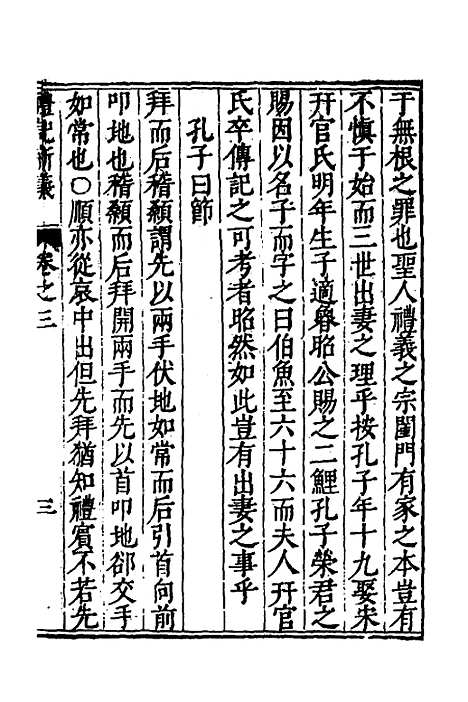 于無根之罪也聖人禮義之宗閨門有家之本豈有
不慎于始而三世出妻之理乎按孔子年十九娶宋
幵官氏明年生子適魯昭公賜之二鯉孔子榮君之
賜因以名子而字之曰伯魚至六十六而夫人幵官
氏卒傳記之可考者昭然如此豈有出妻之事乎
孔子曰節
拜而后稽顙謂先以兩手伏地如常而后引首向前
叩地也稽顙而后拜開兩手而先以首叩地郤交手
如常也○順亦從哀中出但先拜猶知禮賓不若先
禮記新義 卷之三 三